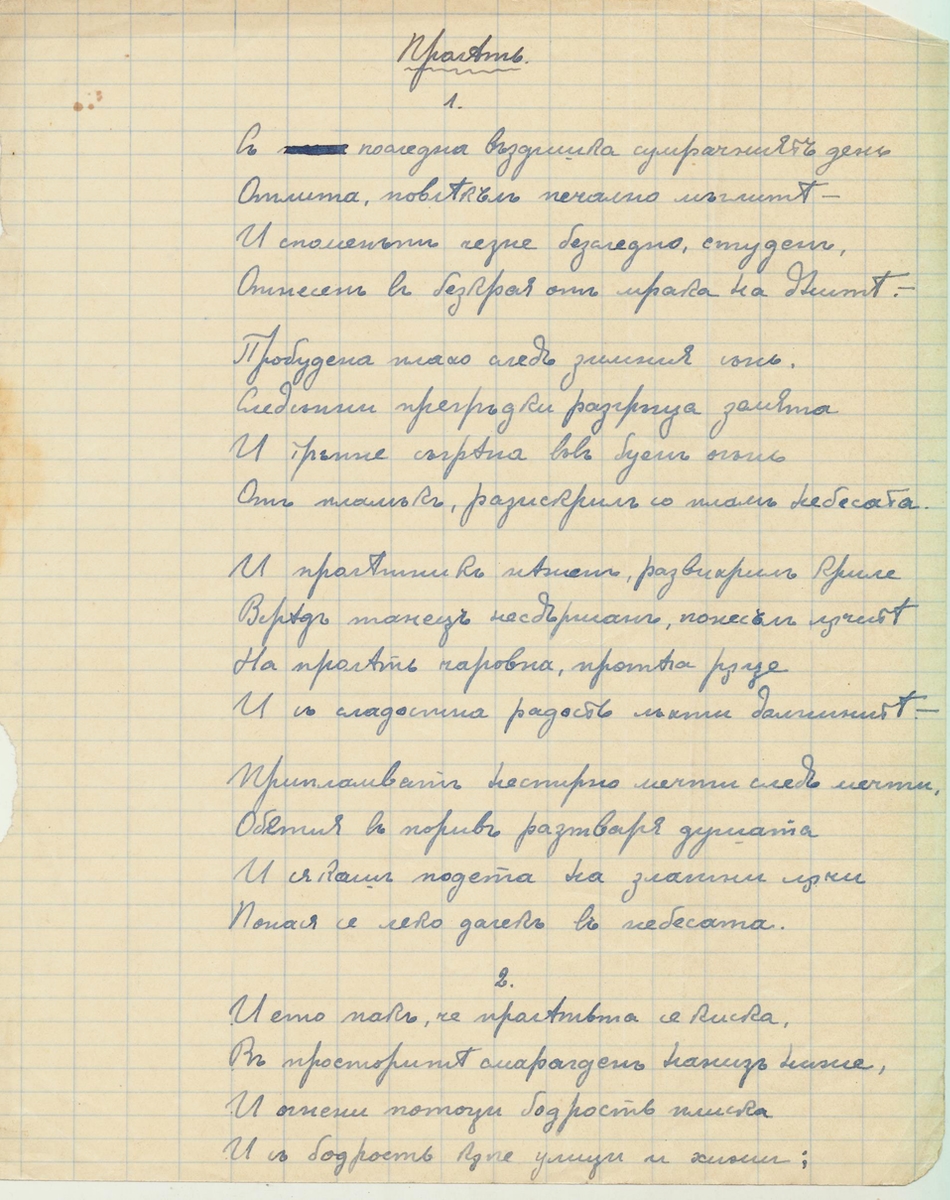 Пролѣть.
1.
Съ последна въздишка сумрачниятъ день
Отлита, повлѣкълъ печално мъглитѣ —
И споменътъ чезне безследно, студенъ,
Отнесенъ въ безкрая отъ мрака на днитѣ. —
Пробудена плахо следъ зимния сънь.
Следсънни прегръдки разгръща земята
И тръпне съгрѣна въвъ буенъ огънь
Отъ пламъкъ, разискрилъ со пламъ небесата.
И пролѣтникъ нѣженъ, развихрилъ криле
Всрѣдъ танецъ несдържанъ, понесълъ лѫчитѣ
На пролѣть чаровна, протѣга рѫце
И съ сладостна радость мъкти далнинитѣ —
Припламватъ нестирно мечти следъ мечти,
Обятия въ поривъ разтваря душата
И сякашъ подета на златни лѫчи
Понася се леко далекъ въ небесата.
2.
И ето пакъ, че пролѣтьта се киска,
Въ просторитѣ смарагденъ нанизъ ниже,
И огнени потоци бодрость плиска
И съ бодрость кѫпе улици и хижи;